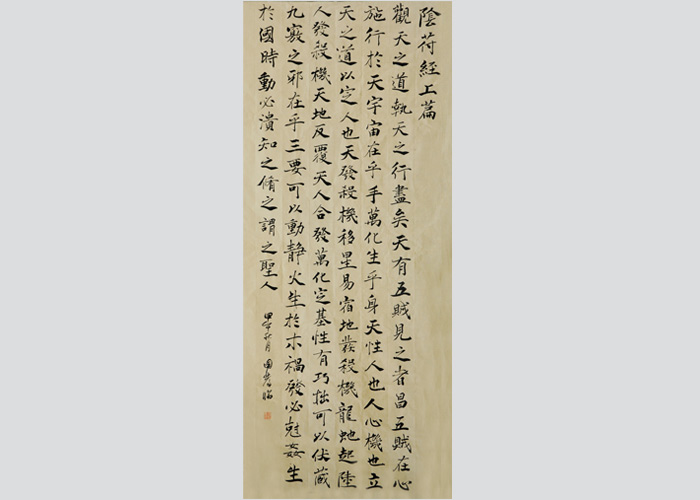 陰符經上篇
觀天之道執天之行盡矣天有五賊見之者昌五賊在心
施行於天宇宙在乎手萬化生乎身天性人也人心機也立
天之道以定人也天發殺機移星易宿地發殺機龍虵起陸
人發殺機天地反覆天人合發萬化定基性有巧拙可以伏藏
九竅之邪在乎三要可以動靜火生於木禍發必尅姦生
於國時動必潰知之脩之謂之聖人